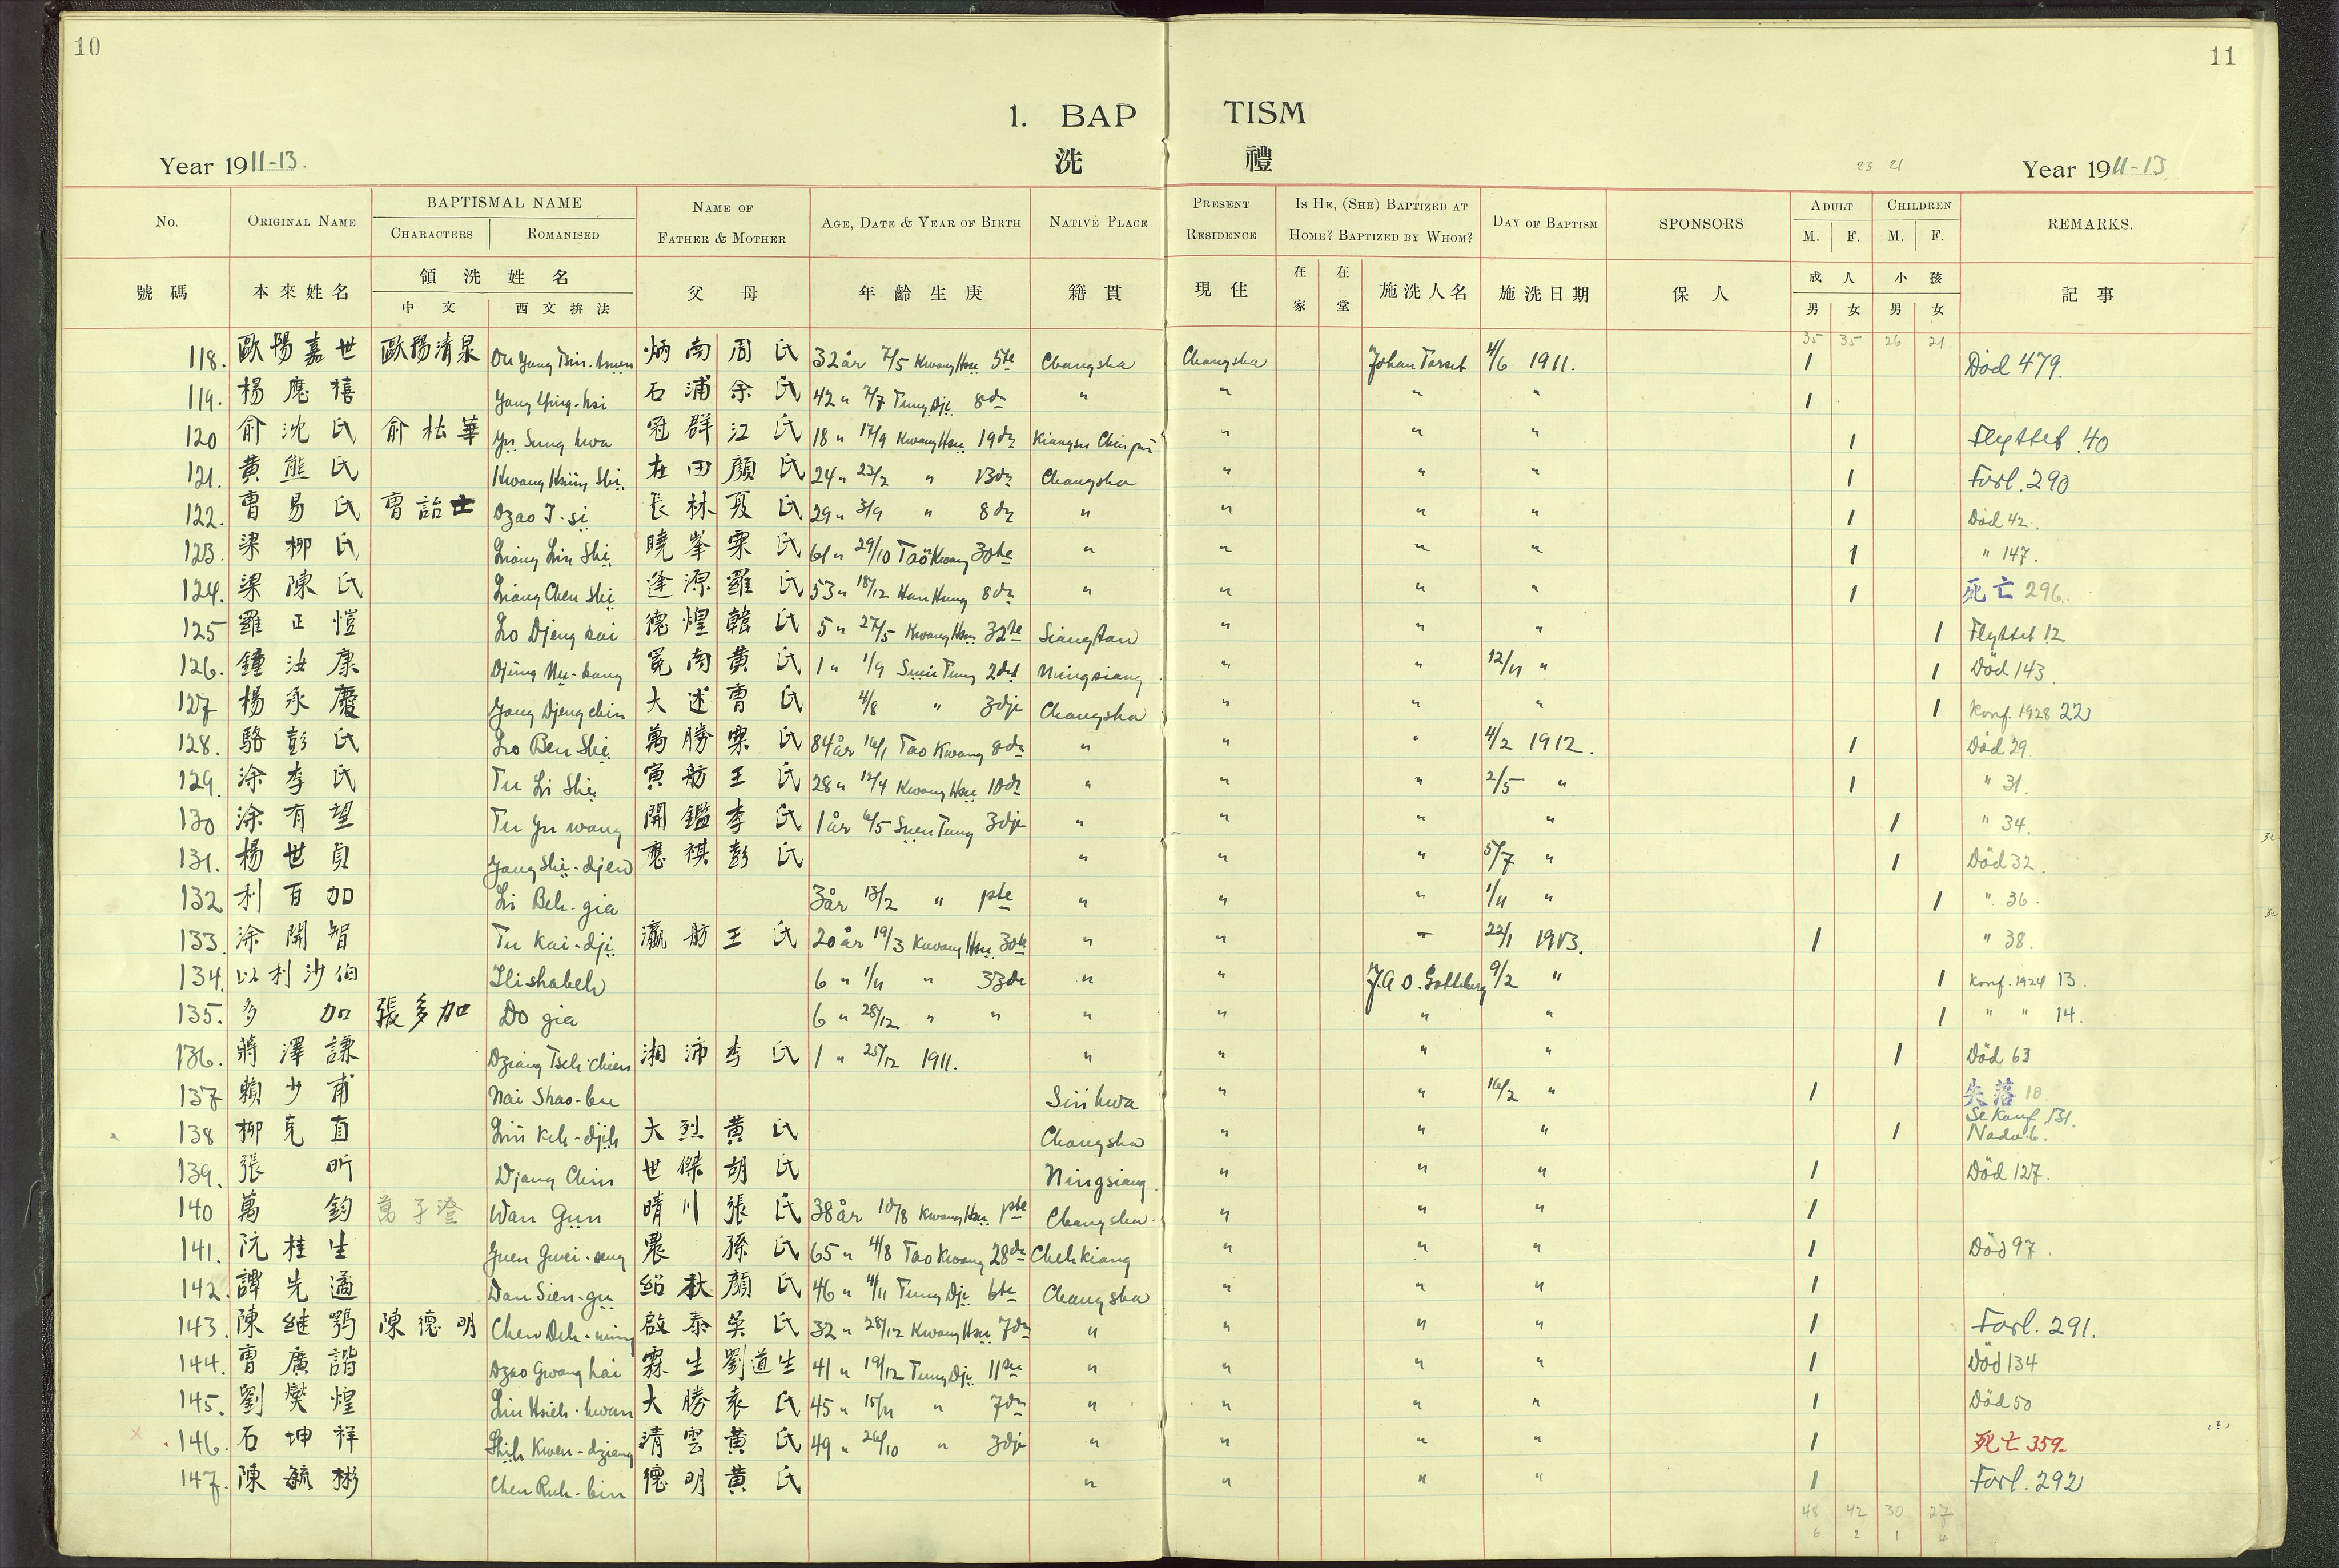 10
11
1. BAP TISM
洗 禮
Year 1911-13.
23 21
Year 1911-13.
No. ORIGINAL NAME BAPTISMAL NAME CHARACTERS ROMANISED NAME OF FATHER & MOTHER AGE, DATE & YEAR OF BIRTH NATIVE PLACE PRESENT RESIDENCE IS HE, (SHE) BAPTIZED AT HOME? BAPTIZED BY WHOM? DAY OF BAPTISM SPONSORS ADULT M. F. CHILDREN M. F. REMARKS.
號碼 本來姓名 領洗姓名 中文 西文拚法 父母 年齡生庚 籍貫 現住 在家 在堂 施洗人名 施洗日期 保人 成人 男 女 小孩 男 女 記事
35 35 26 21
118. 歐陽嘉世 歐陽清泉 Ou Yang Tsin-tsuen 炳南 周氏 32 år 7/5 Kwang Hsu 5te Changsha Changsha Johan Torset 4/6 1911. 1 Död 479.
119. 楊應禧 Yang Ying-hsi 石浦 余氏 42 " 7/7 Tung Dji 8de " " " " 1
120 俞沈氏 俞松華 Yu Sung hwa 冠群 江氏 18 " 17/9 Kwang Hsu 19de Kiangsu " " " 1 Flyttet 40
121. 黄熊氏 Hwang Hsiung Shi 在田 顏氏 24 " 23/2 " 13de Changsha " " " 1 Forl. 290
122. 曹易氏 曹詒士 Dzao I-si 長林 夏氏 29 " 3/9 " 8de " " " " 1 Död 42.
123. 梁柳氏 Liang Liu Shi 曉峯 粟氏 61 " 29/10 Tao Kwang 30te " " " " 1 " 147.
124. 梁陳氏 Liang Chen Shi 逢源 羅氏 53 " 18/12 Han Hung 8de " " " " 1 死亡 296.
125 羅正愷 Lo Djeng kai 德煌 韓氏 5 " 27/5 Kwang Hsu 32te Siangtan " " " 1 Flyttet 12
126. 鐘汝康 Djung Nu-kang 冕南 黄氏 1 " 1/9 Suen Tung 2det Ningsiang " " 12/11 " 1 Död 143.
127 楊承慶 Yang Djeng chin 大述 曹氏 4/8 " 3dje Changsha " " " 1 Konf. 1928 22
128. 駱彭氏 Lo Ben Shi 萬勝 粟氏 84 år 16/1 Tao Kwang 8de " " " 4/2 1912. 1 Död 29.
129. 涂李氏 Tu Li Shi 寅舫 王氏 28 " 12/4 Kwang Hsu 10de " " " 2/5 " 1 " 31.
130 涂有望 Tu Yu wang 開鑑 李氏 1 år 6/5 Suen Tung 3dje " " " " 1 " 34.
131. 楊世貞 Yang Shi-djen 應祺 彭氏 " " " 5/7 " 1 Död 32.
132 利百加 Li Beh-gia 3 år 13/2 " 1ste " " " 1/11 " 1 " 36.
133. 涂開智 Tu Kai-dji 瀛舫 王氏 20 år 19/3 Kwang Hsu 30te " " " 22/1 1913. 1 " 38.
134. 以利沙伯 Ilishabeh 6 " 1/11 " 33de " " J.A.O. Gotteberg 9/2 " 1 Konf. 1924 13.
135. 多加 張多加 Do gia 6 " 28/12 " " " " " " 1 " " 14.
136. 蔣澤謙 Dziang Tseh chien 湘沛 李氏 1 " 25/12 1911. " " " " 1 Död 63
137 賴少甫 Nai Shao-bu Sinhwa " " 16/2 " 1 失落 10.
138 柳克直 Liu Keh-djih 大烈 黄氏 Changsha " " " 1 Se Konf. 131. Nadv. 6.
139. 張昕 Djang Chin 世傑 胡氏 Ningsiang " " " 1 Död 127.
140 萬鈞 萬子澄 Wan Gun 晴川 張氏 38 år 10/8 Kwang Hsu 1ste Changsha " " " 1
141. 阮桂生 Yuen Gwei-seng 農 孫氏 65 " 4/8 Tao Kwang 28de Chehkiang " " " 1 Död 97.
142. 譚先遹 Dan Sien-gu 紹秋 顏氏 46 " 4/11 Tung Dji 6te Changsha " " " 1
143. 陳继鶚 陳德明 Chen Deh-ming 啟泰 吳氏 32 " 28/12 Kwang Hsu 7de " " " " 1 Forl. 291.
144. 曹廣諧 Dzao Gwang hai 霖生 劉道生 41 " 19/12 Tung Dji 11te " " " " 1 Död 134
145. 劉爕煌 Liu Hsieh-hwan 大勝 袁氏 45 " 15/11 " 7de " " " " 1 Död 50
x 146. 石坤祥 Shih Kwen-dziang 清雲 黄氏 49 " 26/10 " 3dje " " " " 1 死亡 359.
147. 陳毓彬 Chen Ruh-bin 德明 黄氏 " " " " 1 Forl. 292
48 42 30 27
6 2 1 4